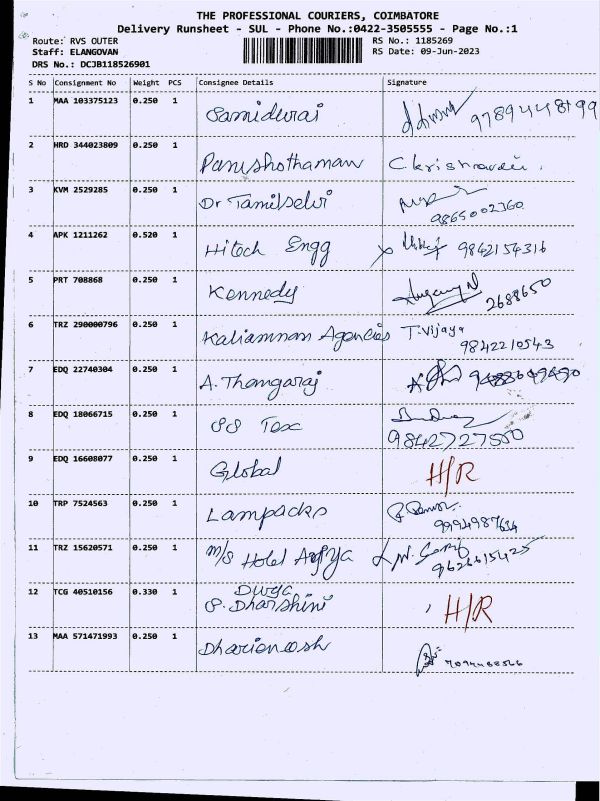 THE PROFESSIONAL COURIERS, COIMBATORE
Delivery Runsheet - SUL - Phone No.:0422-3505555 - Page No.:1
Route: RVS OUTER RS No.: 1185269
Staff: ELANGOVAN RS Date: 09-Jun-2023
DRS No.: DCJB118526901
S No Consignment No Weight PCS Consignee Details Signature
1 MAA 103375123 0.250 1 Samidurai 9789448199
2 HRD 344023809 0.250 1 Purushothaman
3 KVM 2529285 0.250 1 Dr Tamilselvi 9865002360
4 APK 1211262 0.520 1 Hitech Engg 9842154316
5 PRT 708868 0.250 1 Kennedy 2688650
6 TRZ 290000796 0.250 1 Kaliamman Agencies T. Vijaya
9842210543
7 EDQ 22740304 0.250 1 A. Thangaraj
8 EDQ 18066715 0.250 1 SS Tex
9842727500
9 EDQ 16608077 0.250 1 Global H/R
10 TRP 7524563 0.250 1 Lampacks
9994987634
11 TRZ 15620571 0.250 1 M/s Hotel
9626615425
12 TCG 40510156 0.330 1 Durga
S. Dharshini H/R
13 MAA 571471993 0.250 1